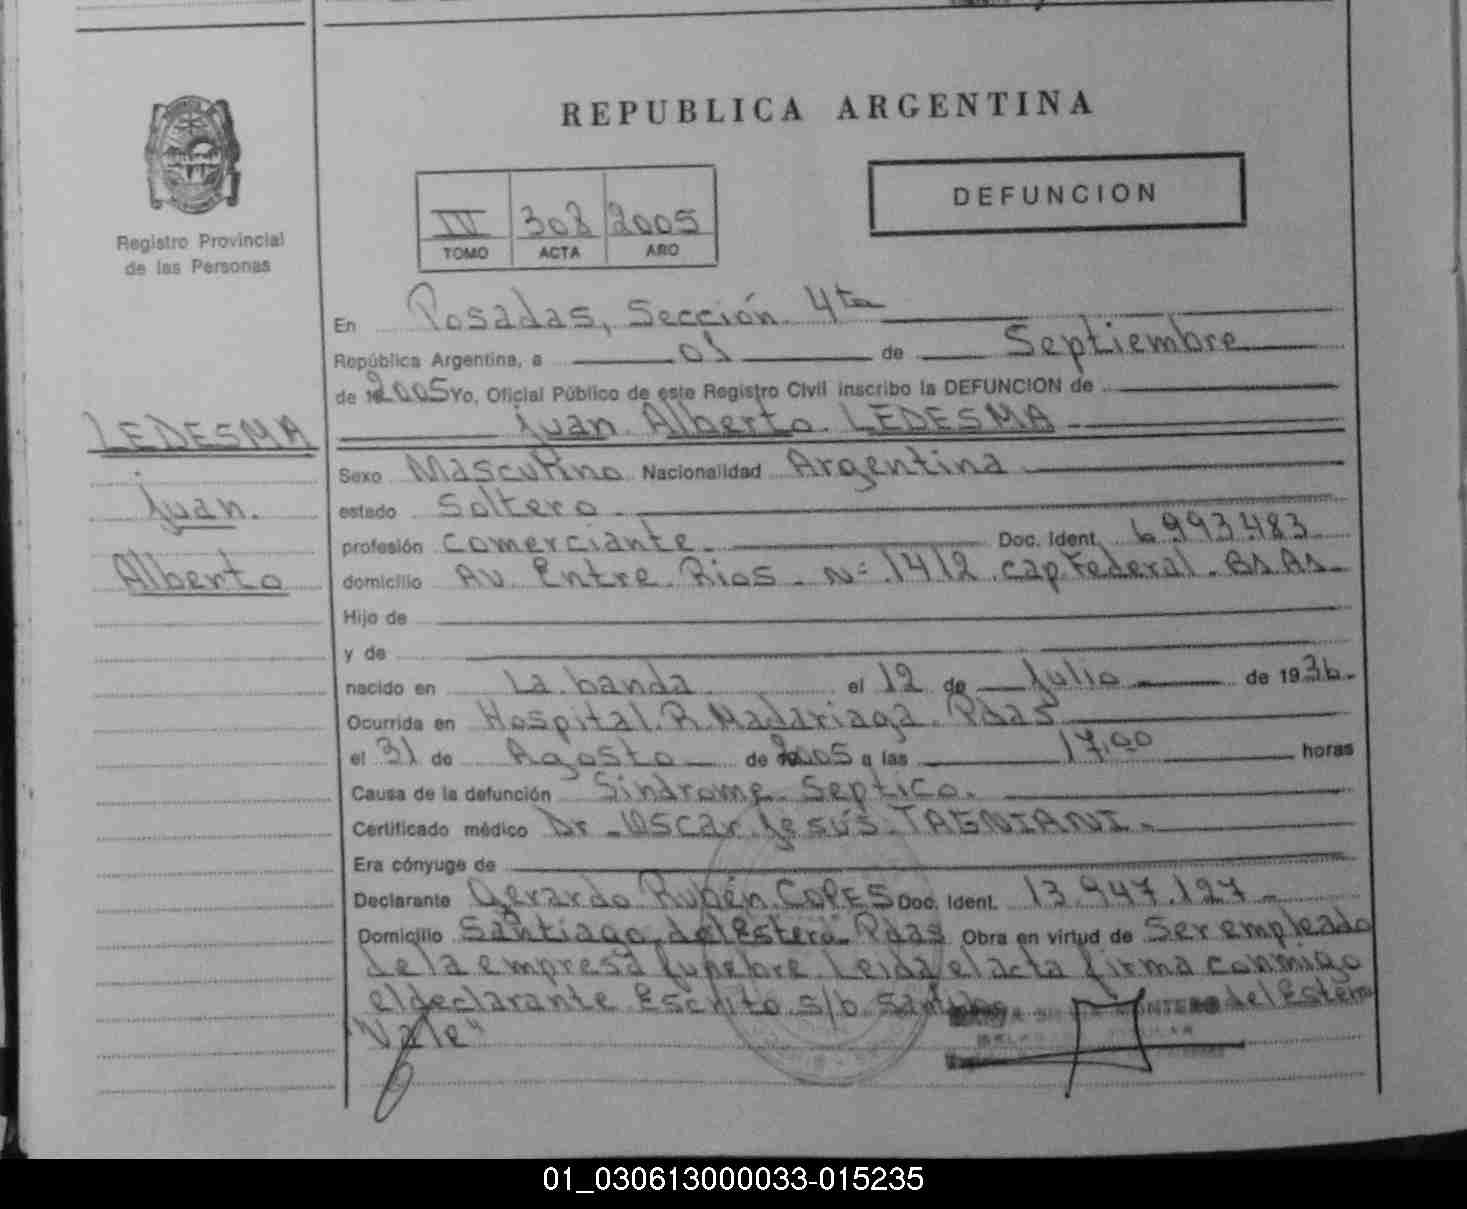 REPUBLICA ARGENTINA
DEFUNCION
Registro Provincial
de las Personas
IV 308 2005
TOMO ACTA AÑO
En Posadas, Sección 4ta
República Argentina, a 01 de Septiembre
de 2005 Yo, Oficial Público de este Registro Civil inscribo la DEFUNCION de
LEDESMA
Juan
Alberto
Juan Alberto LEDESMA
Sexo Masculino Nacionalidad Argentina
estado Soltero
profesión Comerciante Doc. Ident. 6.993.483
domicilio Av. Entre Rios N= 1412 Cap Federal. Bs As
Hijo de
y de
nacido en La banda el 12 de Julio de 1936
Ocurrida en Hospital R. Madariaga Pdas
el 31 de Agosto de 2005 a las 17,00 horas
Causa de la defunción Sindrome Septico.
Certificado médico Dr. Oscar Jesús TAGNIANI
Era cónyuge de
Declarante Gerardo Rubén COPES Doc. Ident. 13.947.127
Domicilio Santiago del Estero Pdas Obra en virtud de Ser empleado
de la empresa funebre. Leida el acta firma conmigo
el declarante Escrito s/b Santiago del Estero
"Vale"
01_030613000033-015235